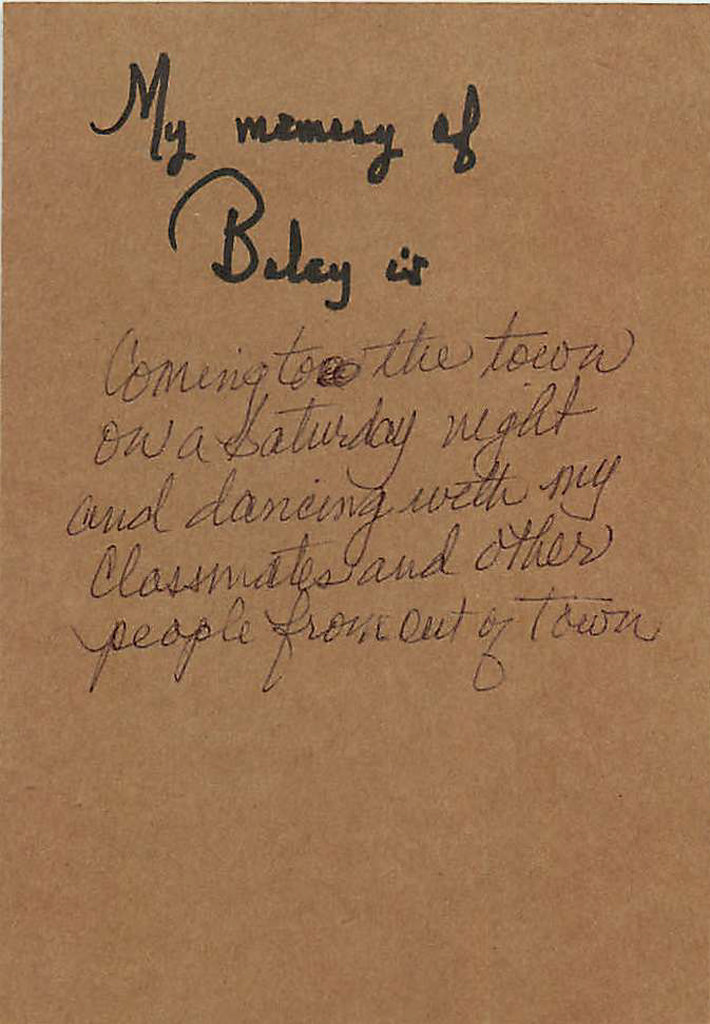 My memory of
Boley is
Coming to the town
on a Saturday night
and dancing with my
Classmates and other
people from out of Town